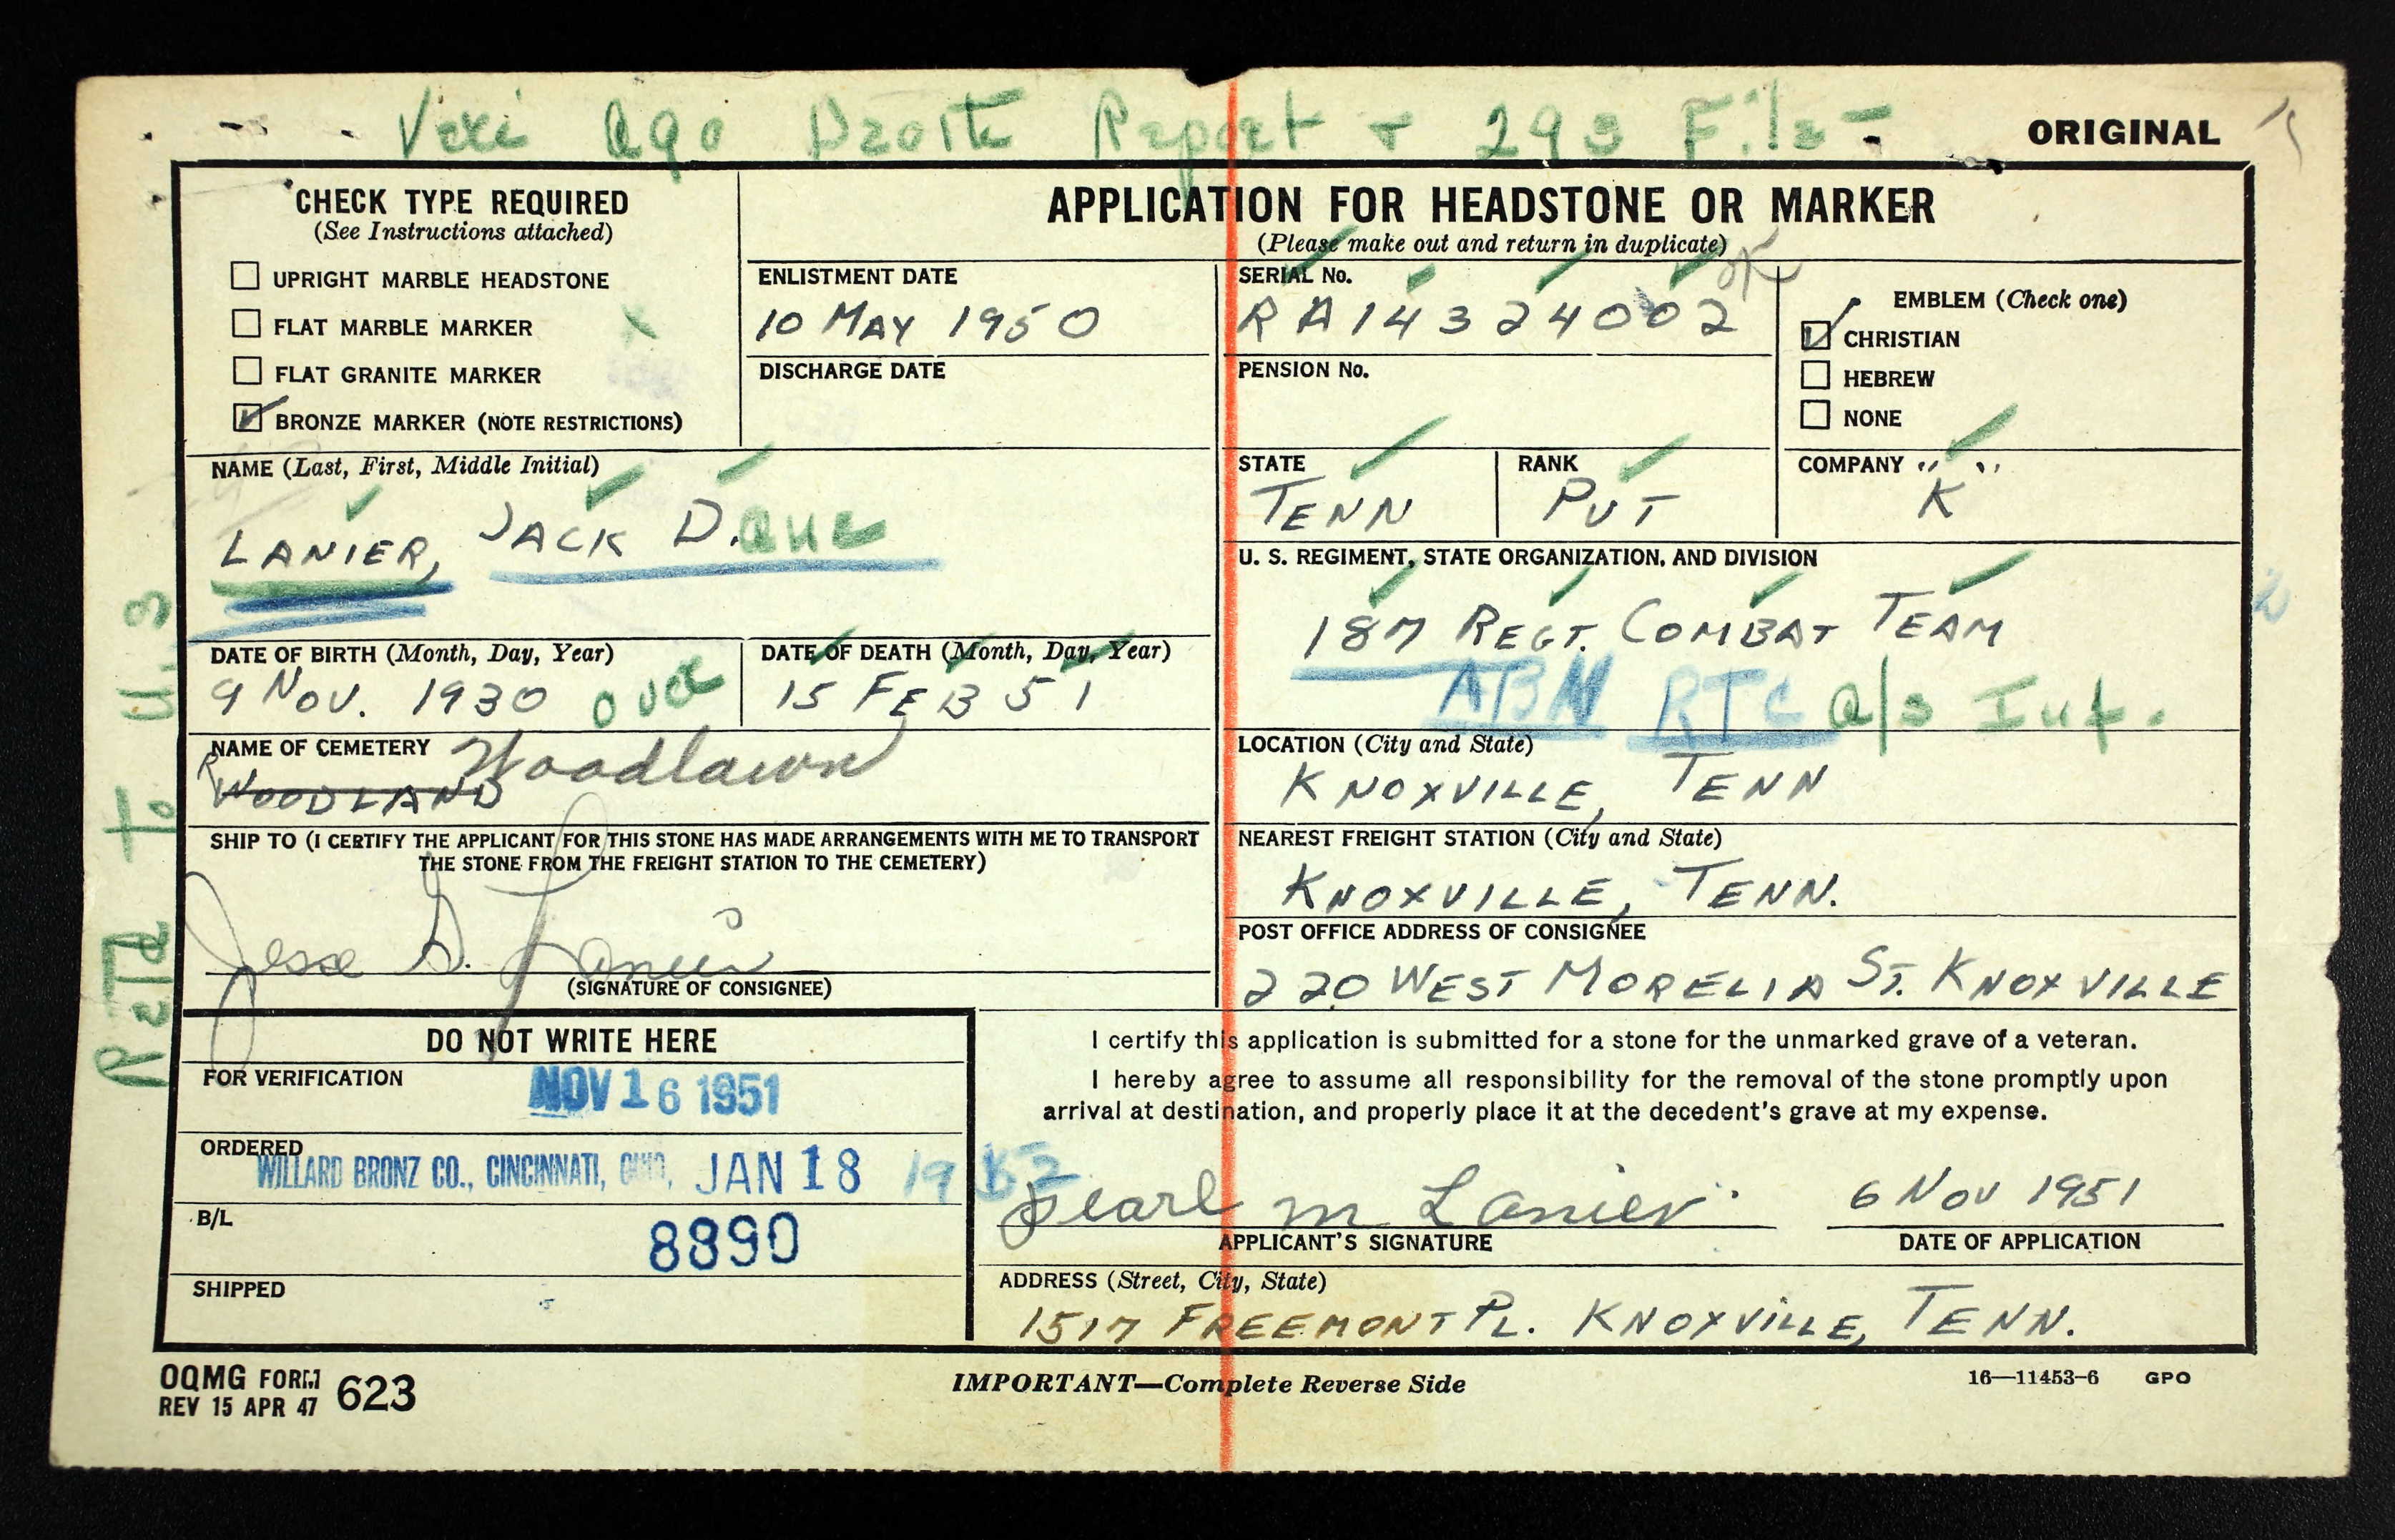 Veri Ago Death Report + 293 File -
ORIGINAL
CHECK TYPE REQUIRED
(See Instructions attached)
UPRIGHT MARBLE HEADSTONE
FLAT MARBLE MARKER
FLAT GRANITE MARKER
BRONZE MARKER (NOTE RESTRICTIONS)
APPLICATION FOR HEADSTONE OR MARKER
(Please make out and return in duplicate)
ENLISTMENT DATE
10 MAY 1950
DISCHARGE DATE
SERIAL No.
OK
RA14324002
PENSION No.
EMBLEM (Check one)
CHRISTIAN
HEBREW
NONE
NAME (Last, First, Middle Initial)
LANIER, JACK D.
STATE
TENN
RANK
PVT
COMPANY
"K"
U. S. REGIMENT, STATE ORGANIZATION, AND DIVISION
187 REGT. COMBAT TEAM
ABN RTC a/s Inf.
DATE OF BIRTH (Month, Day, Year)
9 NOV. 1930 over
DATE OF DEATH (Month, Day, Year)
15 FEB 51
NAME OF CEMETERY
Woodlawn
WOODLAND
LOCATION (City and State)
KNOXVILLE, TENN
SHIP TO (I CERTIFY THE APPLICANT FOR THIS STONE HAS MADE ARRANGEMENTS WITH ME TO TRANSPORT
THE STONE FROM THE FREIGHT STATION TO THE CEMETERY)
Jesse D. Lanier
(SIGNATURE OF CONSIGNEE)
NEAREST FREIGHT STATION (City and State)
KNOXVILLE, TENN.
POST OFFICE ADDRESS OF CONSIGNEE
220 WEST MORELIA ST. KNOXVILLE
DO NOT WRITE HERE
FOR VERIFICATION
NOV 16 1951
ORDERED
WILLARD BRONZ CO., CINCINNATI, OHIO, JAN 18 1952
B/L
8890
SHIPPED
I certify this application is submitted for a stone for the unmarked grave of a veteran.
I hereby agree to assume all responsibility for the removal of the stone promptly upon
arrival at destination, and properly place it at the decedent's grave at my expense.
Pearl M Lanier
6 NOV 1951
APPLICANT'S SIGNATURE
DATE OF APPLICATION
ADDRESS (Street, City, State)
1517 FREEMONT PL. KNOXVILLE, TENN.
OQMG FORM
REV 15 APR 47
623
IMPORTANT—Complete Reverse Side
16—11453-6 GPO
Retd To U.S